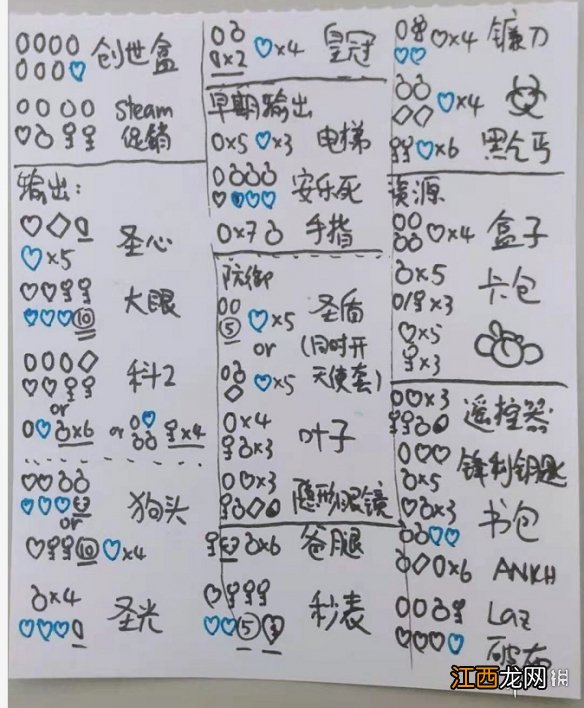 创世盒
Steam
促销
输出:
圣心
×5
大眼
10
科2
or
×6 or ×4
狗头
or
10 ×4
×4
圣光
×2 ×4 皇冠
早期输出
×5 ×3 电梯
安乐死
×7 手指
防御
5 ×5 圣盾
or (同时开
×5 天使套)
×4
×3 叶子
×3
隐形眼镜
×6 爸腿
秒表
5
×4 镰刀
×4
×6 黑乞丐
资源
×4 盒子
×5
×3 卡包
×5
×3
×3 遥控器
锋利钥匙
×5
×3 书包
×6 ANKH
Laz
江西龙网